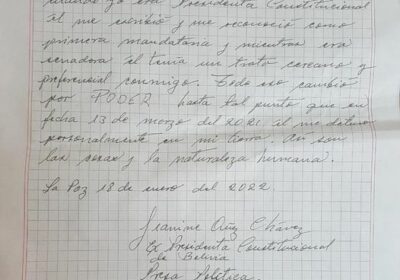 cuando yo era Presidenta Constitucional
él me escribió y me reconoció como
primera mandataria y mientras era
senadora él tenía un trato cercano y
preferencial conmigo. Todo eso cambió
por PODER hasta tal punto que en
fecha 13 de marzo del 2021 él me detuvo
personalmente en mi tierra. Así son
las cosas y la naturaleza humana.
La Paz 18 de enero del 2022.
Jeanine Añez Chávez
Ex Presidenta Constitucional
de Bolivia
Presa Política